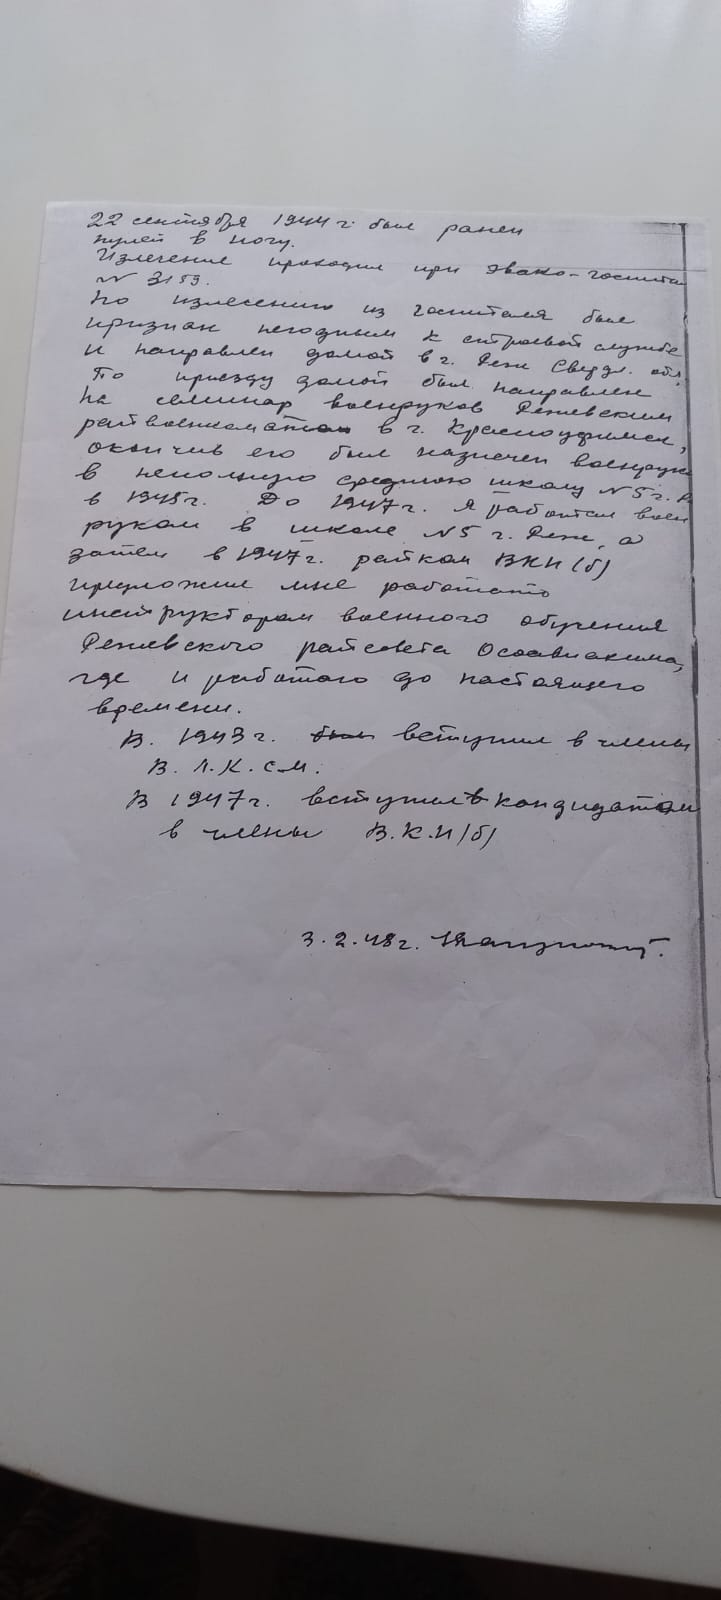 22 сентября 1944 г. был ранен
пулей в ногу.
Излечение проходил при эвако-госпита
№ 3159.
По излечению из госпиталя был
признан негодным к строевой службе
и направлен домой в г. Реж Свердл. обл.
По приезду домой был направлен
на семинар военруков Режевским
райвоенкоматом в г. Красноуфимск,
окончив его был назначен военрук
в неполную среднюю школу № 5 г. Р
в 1945 г. До 1947 г. я работал воен
руком в школе № 5 г. Реж, а
затем в 1947 г. райком ВКП(б)
предложил мне работать
инструктором военного обучения
Режевского райсовета Осоавиахима,
где и работаю до настоящего
времени.
В. 1943 г. вступил в члены
В. Л. К. С. М.
В 1947 г. вступил кандидатом
в члены В. К. П (б)
3. 2. 48 г.